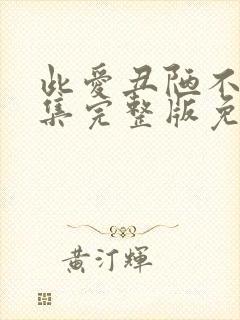 此爱丑陋不
集完整版免
黄汀輝